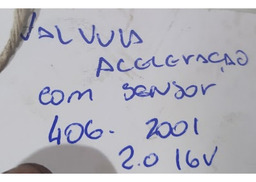 VALVULA
ACELERAÇÃO
COM SENSOR
406. 2001
2.0 16V